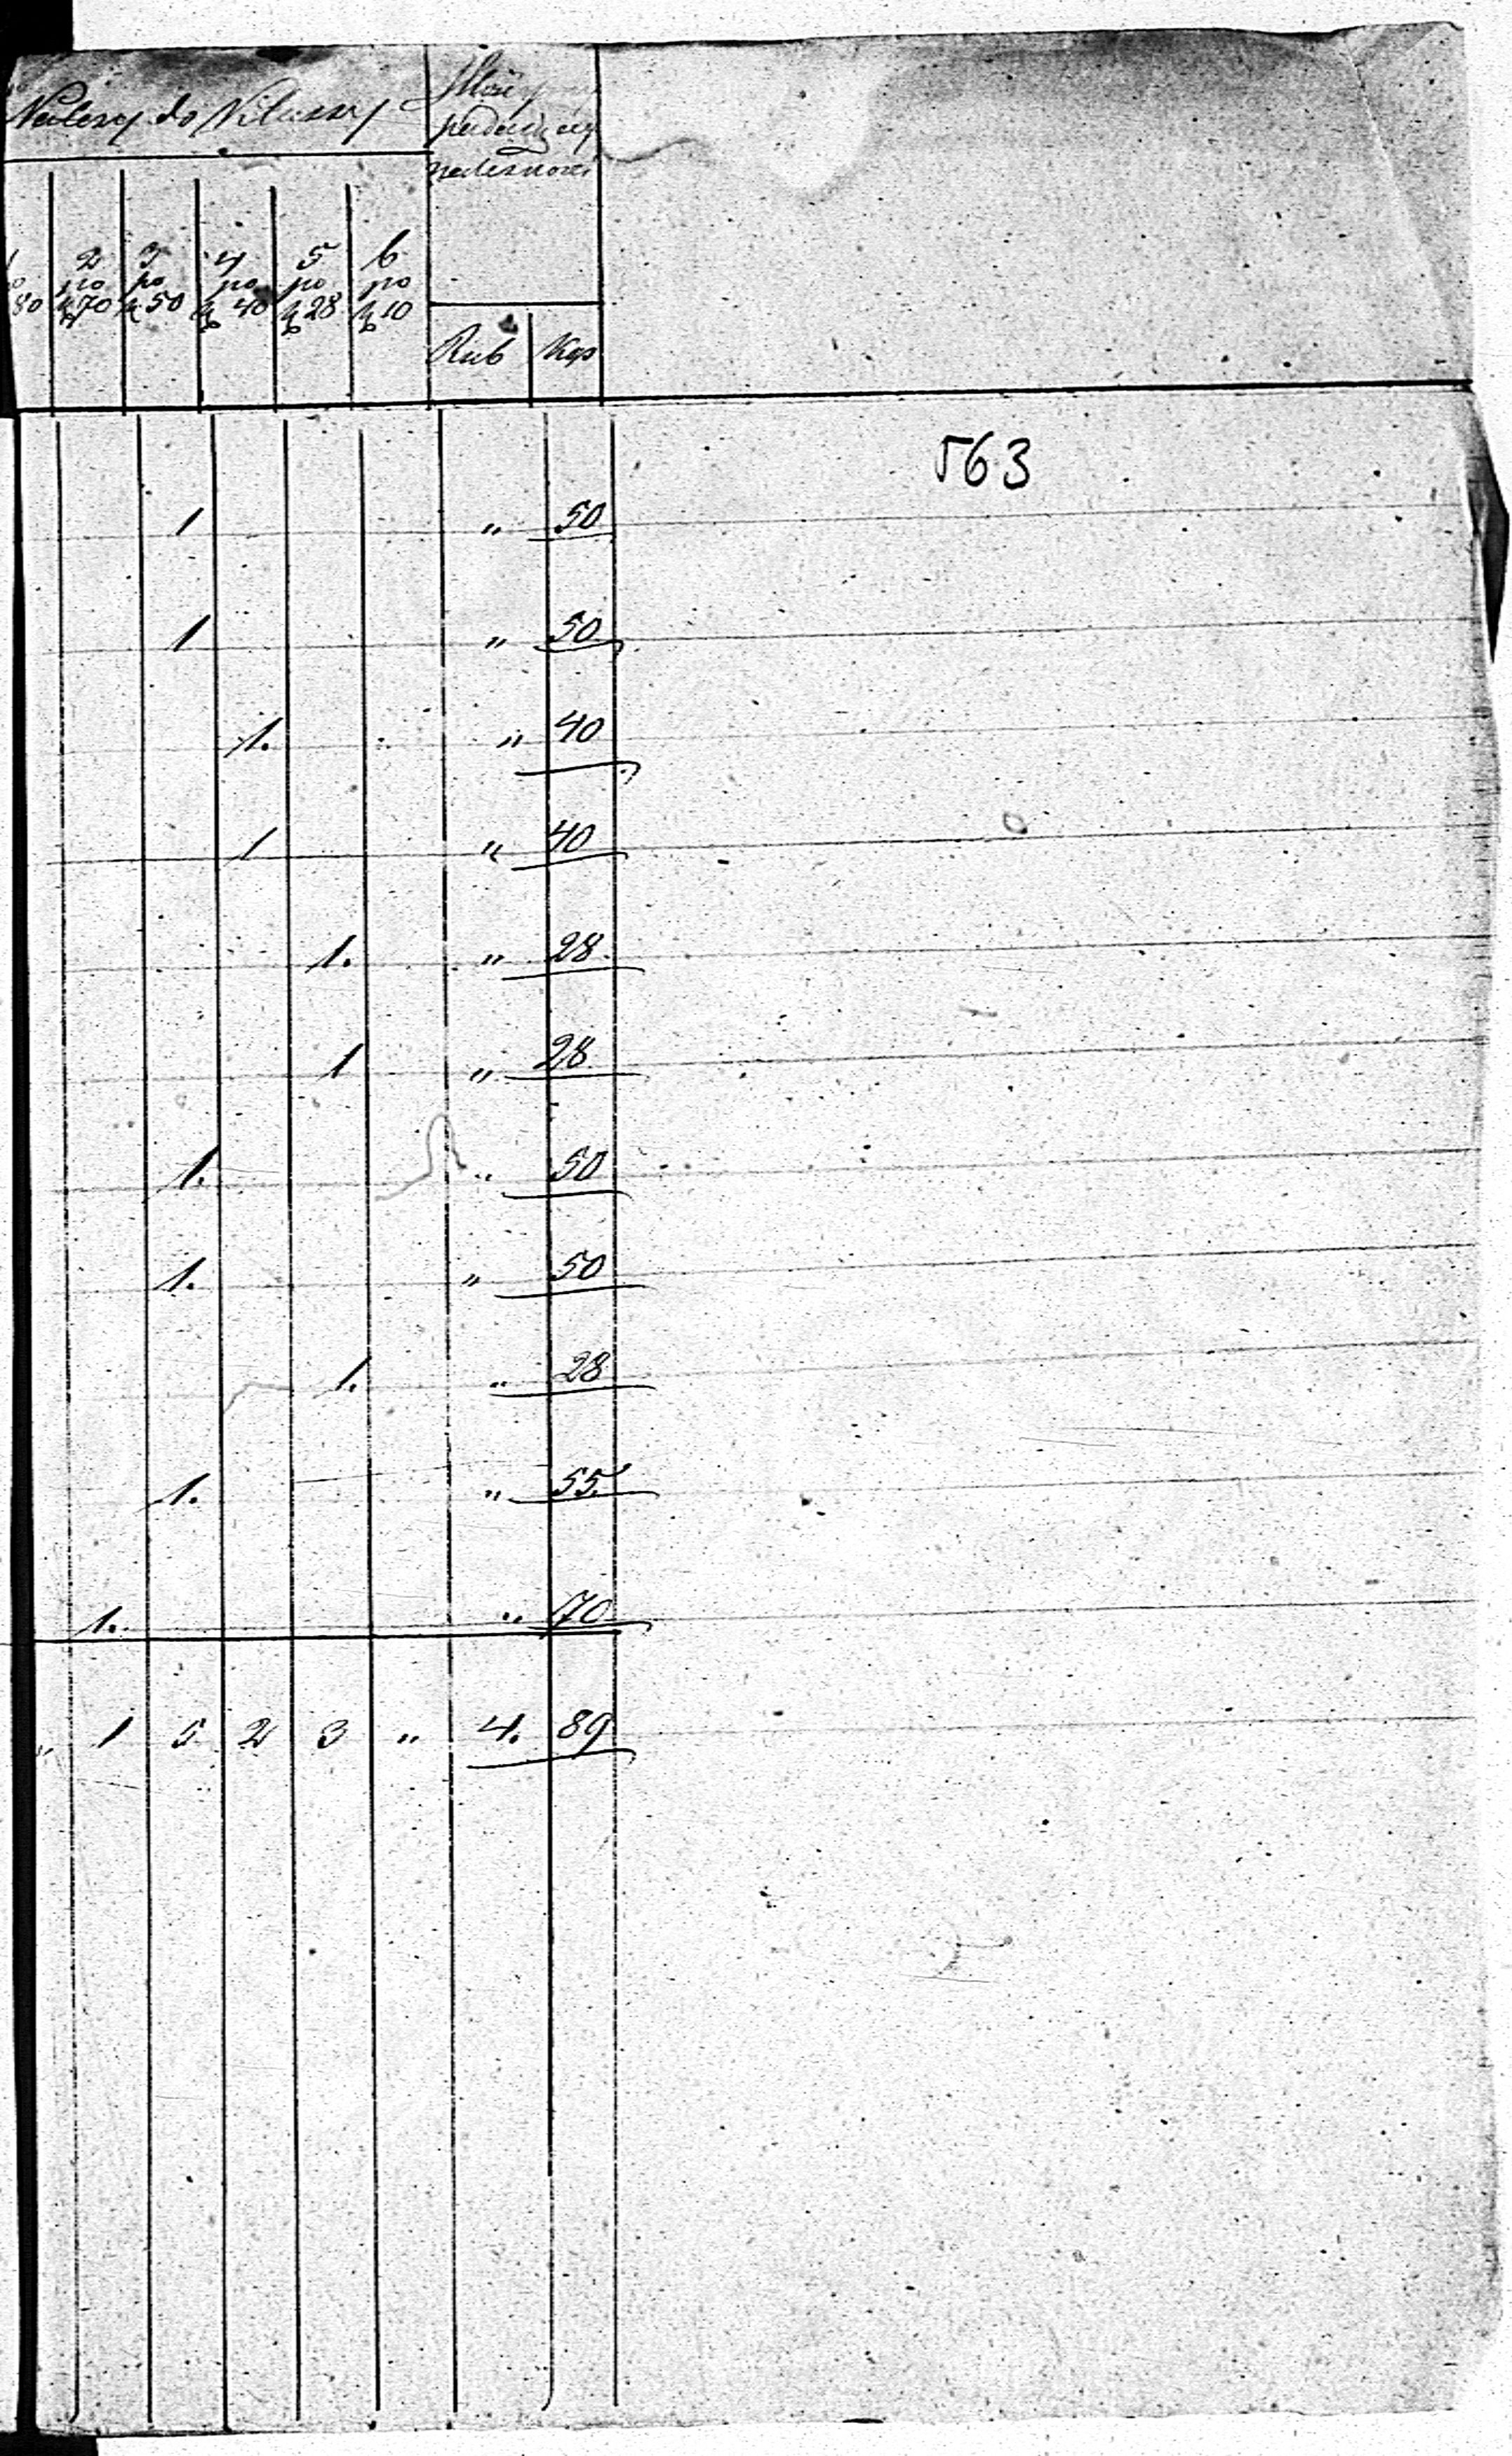 Należy do Klassy
1 2 3 4 5 6
po po po po po
80 k 70 k 50 k 40 k 28 k 10
Rub Kop
563
1 „ 50
1 „ 50
1. „ 40
1 „ 40
1. „ 28
1 „ 28
1. „ 50
1. „ 50
1. „ 28
1. „ 55
1. „ 70
„ 1 5 2 3 „ 4. 89